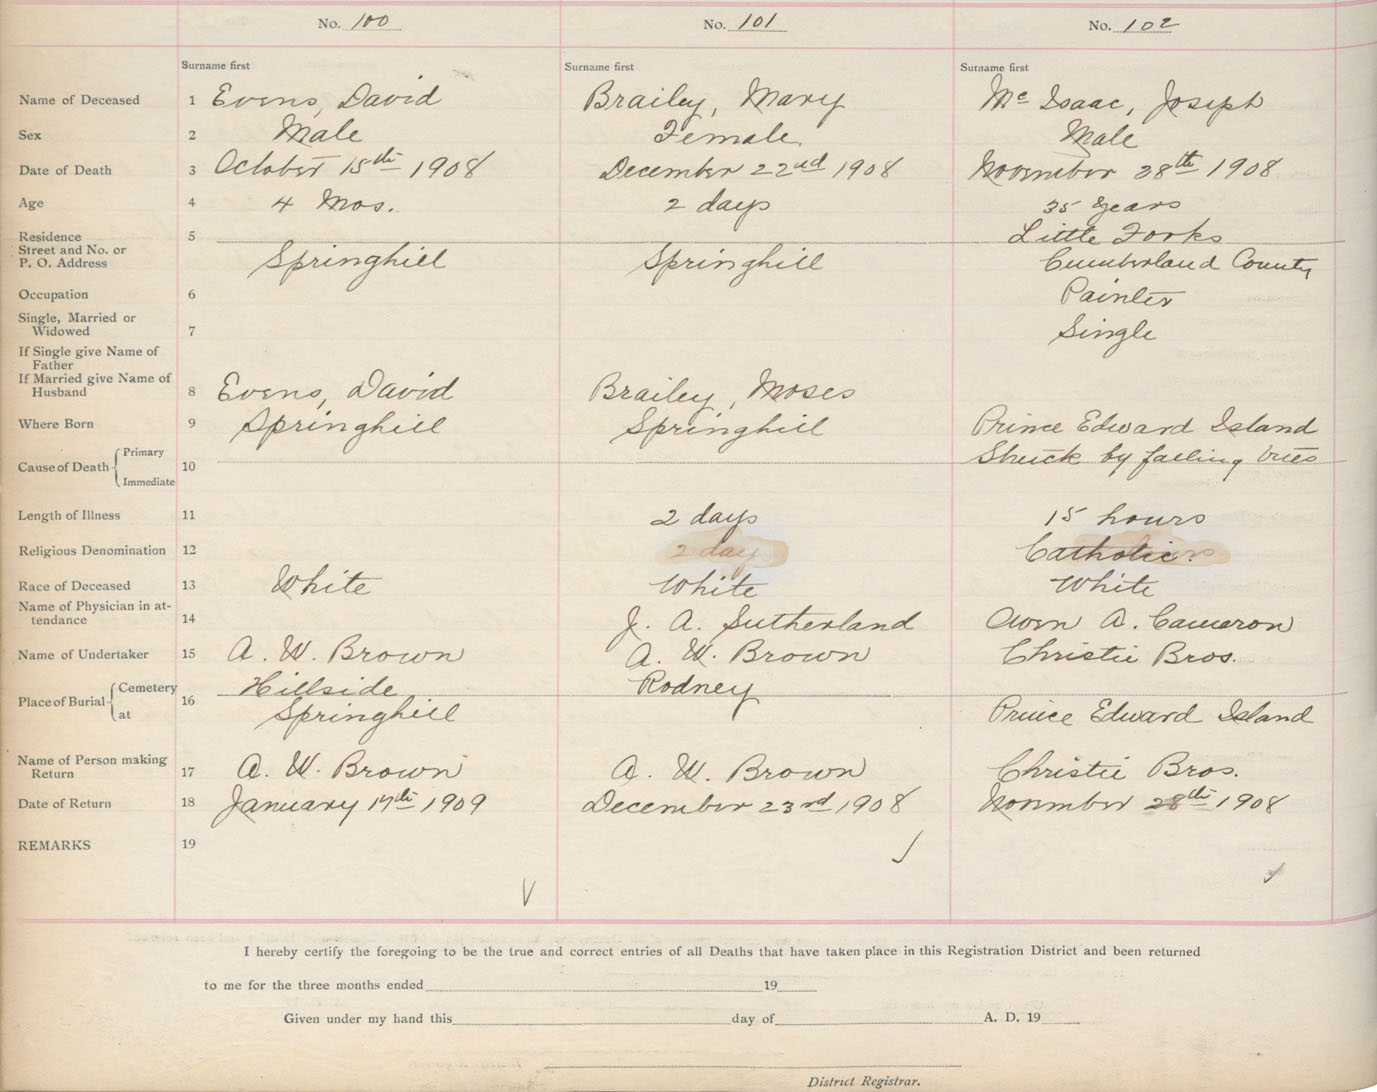 No. 100 No. 101 No. 102
Surname first Surname first Surname first
Name of Deceased 1 Evens, David Brailey, Mary Mc Isaac, Joseph
Sex 2 Male Female Male
Date of Death 3 October 15th 1908 December 22nd 1908 November 28th 1908
Age 4 4 Mos. 2 days 35 years
Residence 5 Little Forks
Street and No. or
P. O. Address Springhill Springhill Cumberland County
Occupation 6 Painter
Single, Married or
Widowed 7 Single
If Single give Name of
Father
If Married give Name of
Husband 8 Evens, David Brailey, Moses
Where Born 9 Springhill Springhill Prince Edward Island
Cause of Death Primary 10 Struck by falling trees
Immediate
Length of Illness 11 2 days 15 hours
Religious Denomination 12 2 days Catholic.
Race of Deceased 13 White White White
Name of Physician in at-
tendance 14 J. A. Sutherland Owen A. Cameron
Name of Undertaker 15 A. W. Brown A. W. Brown Christie Bros.
Place of Burial Cemetery 16 Hillside Rodney
at Springhill Prince Edward Island
Name of Person making
Return 17 A. W. Brown A. W. Brown Christie Bros.
Date of Return 18 January 17th 1909 December 23rd 1908 November 28th 1908
REMARKS 19
I hereby certify the foregoing to be the true and correct entries of all Deaths that have taken place in this Registration District and been returned
to me for the three months ended 19
Given under my hand this day of A. D. 19
District Registrar.